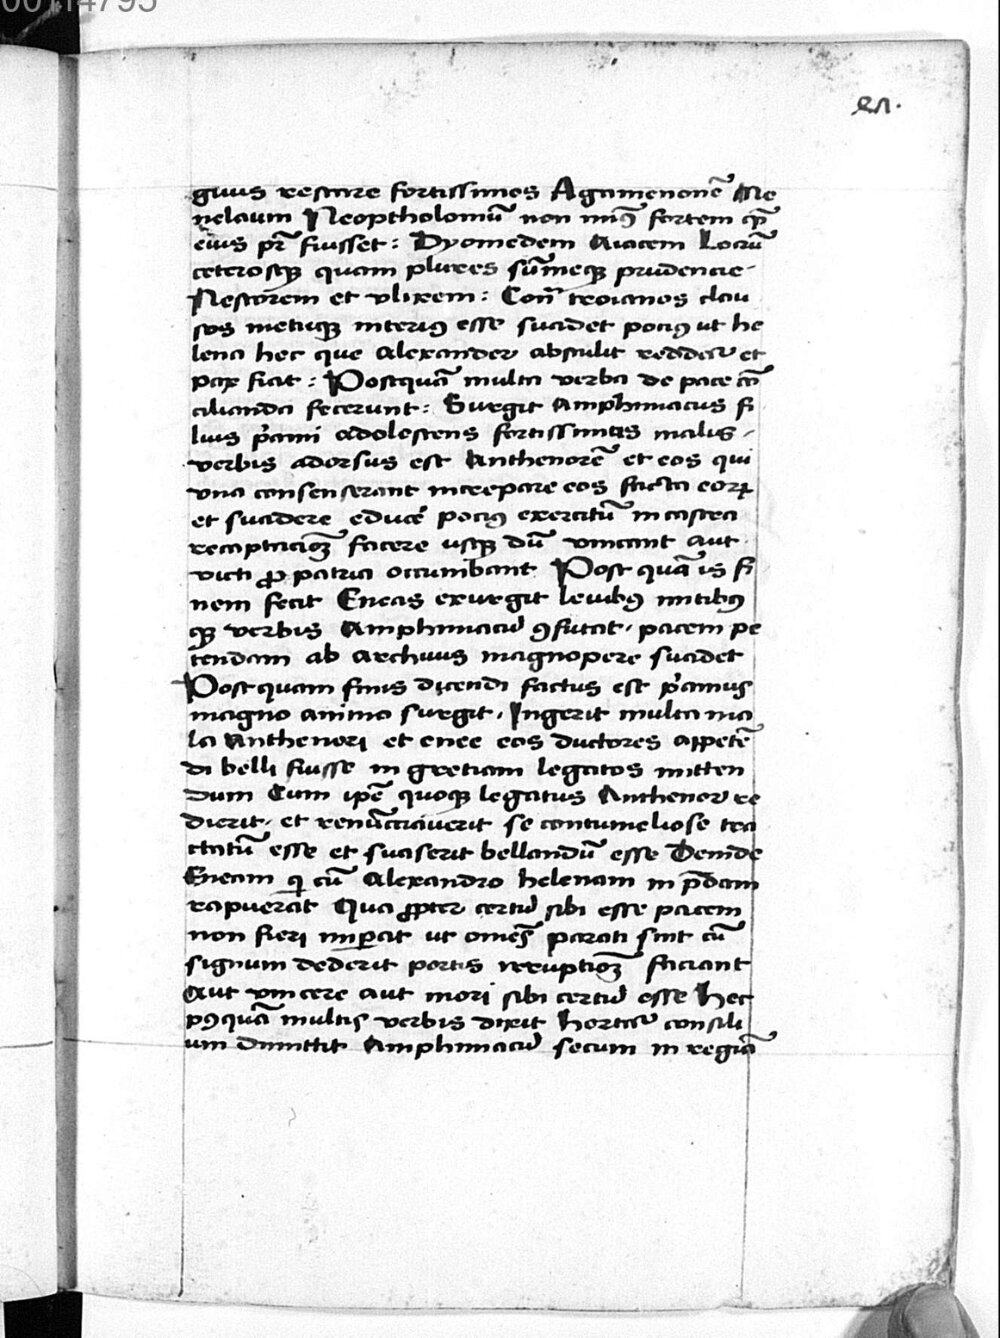 00114795
givis restare fortissimos Agamenonē Me
nelaum Neoptholomū non minꝰ fortem qꝫ
eius pr̄ fuisset : Dyomedem Aiacem Locrū
ceterosqꝫ quam plures sūmeqꝫ prudencie
Nestorem et vlixem : Cont̄ troianos clau
sos metuqꝫ interiꝰ esse suadet pociꝰ ut he
lena hec que Alexander abstulit reddat᷑ et
pax fiat : Postquā multa verba de pace cō
cilianda fecerunt : Surgit Amphimacus fi
lius p̓ami adolescens fortissimus malis
verbis adorsus est Anthenorē et eos qui
vna consenserant increpare eos facta eoꝝ
et suadere educe᷑ pociꝰ exercitū in castra
recaptacioꝫ facere usqꝫ dū vincant aut
victi ꝓ patria occumbant Post quā is fi
nem fecit Eneas exurgit leuibꝰ mitibꝰ
qꝫ verbis Amphimacū ꝯfutat, pacem pe
tendam ab archiuis magnopere suadet
Post quam finis dicendi factus est p̓amus
magno animo surgit, Ingerit multa ma
la Anthenori et enee eos ductores appetē
di belli fuisse in greciam legatos mitten
dum Cum ip̄e quoqꝫ legatus Anthenor re
dierit, et renūcciauerit se contumeliose tra
ctatū esse et suaserit bellandū esse Deinde
Eneam qi cū Alexandro helenam in p̄dam
rapuerat Qua ꝓpter certū sibi esse pacem
non fieri imꝑat ut omēs parati sint cū
signum dederit portis irruptioꝫ faciant
Aut vincere aut mori sibi certū esse Hec
pꝰquā multis verbis dixit Hortat᷑ consili
um dimittit Amphimacū secum in regiā